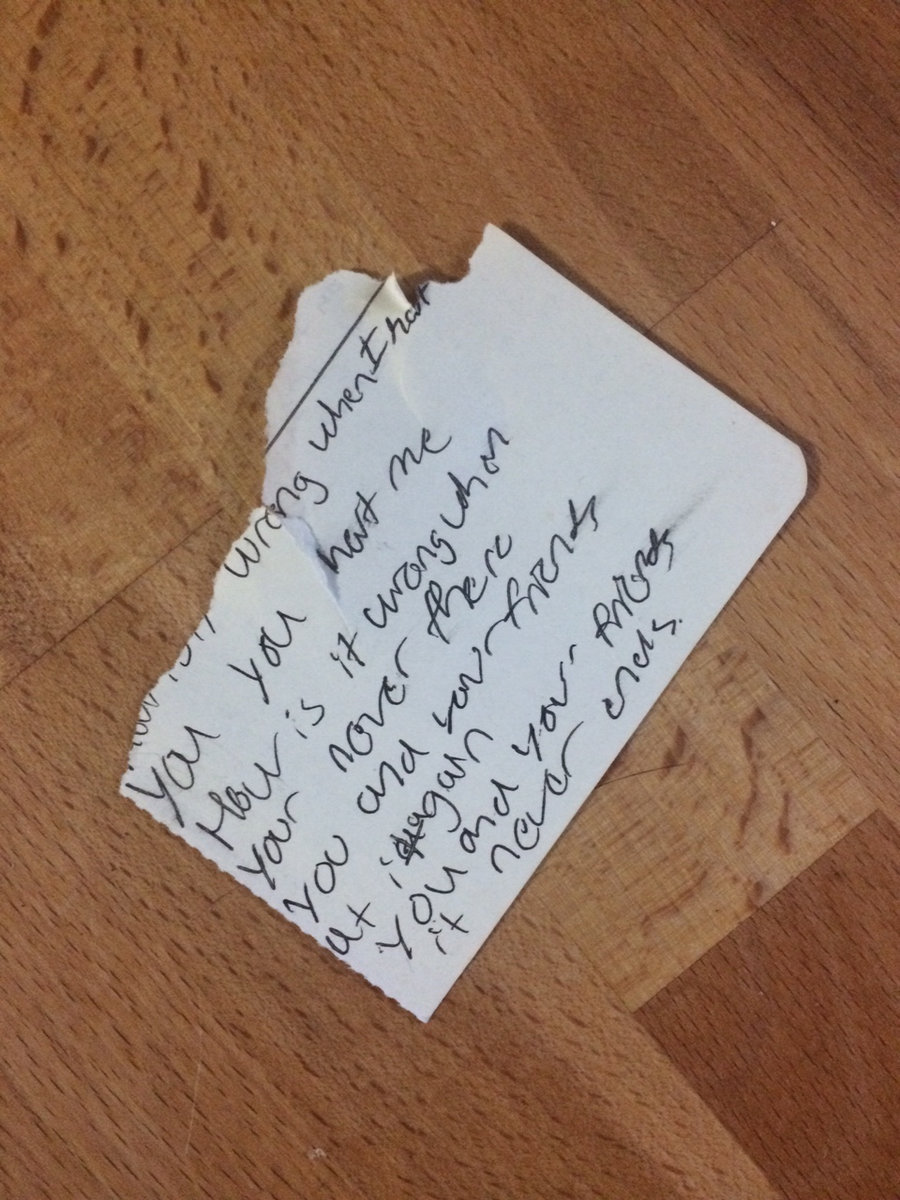 How is it wrong when I hart
you you hart me
How is it wrong whon
your nover there
You and your friends
at it again
You and your friends
it never ends.